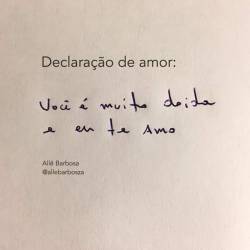 Declaração de amor:
Você é muito doida
e eu te amo
Allê Barbosa
@allebarbosza